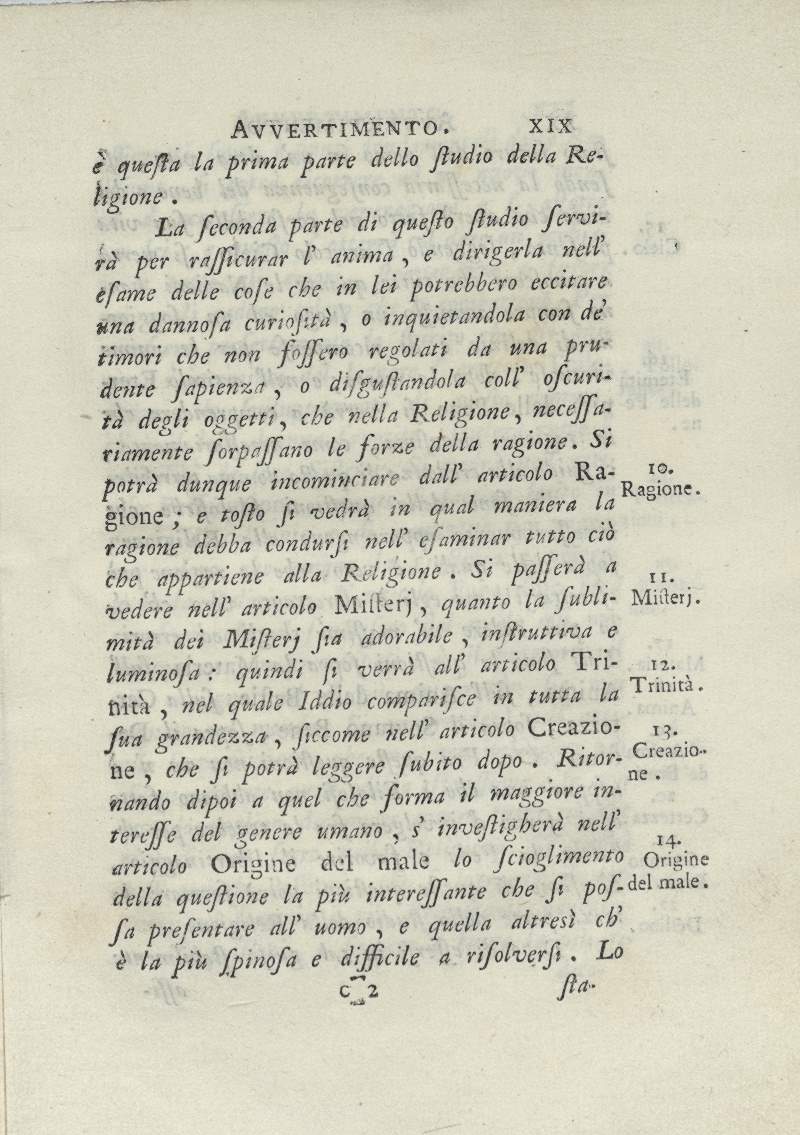 AVVERTIMENTO. XIX
è queſta la prima parte dello ſtudio della Re-
ligione.
La ſeconda parte di queſto ſtudio ſervi-
rà per raſſicurar l' anima, e dirigerla nell'
eſame delle coſe che in lei potrebbero eccitare
una dannoſa curioſità, o inquietandola con de'
timori che non foſſero regolati da una pru-
dente ſapienza, o diſguſtandola coll' oſcuri-
tà degli oggetti, che nella Religione, neceſſa-
riamente ſorpaſſano le forze della ragione. Si
potrà dunque incominciare dall' articolo Ra-
gione; e toſto ſi vedrà in qual maniera la
ragione debba condurſi nell' eſaminar tutto ciò
che appartiene alla Religione. Si paſſerà a
vedere nell' articolo Miſterj, quanto la ſubli-
mità dei Miſterj ſia adorabile, inſtruttiva e
luminoſa: quindi ſi verrà all' articolo Tri-
nità, nel quale Iddio compariſce in tutta la
ſua grandezza, ſiccome nell' articolo Creazio-
ne, che ſi potrà leggere ſubito dopo. Ritor-
nando dipoi a quel che forma il maggiore in-
tereſſe del genere umano, s' inveſtigherà nell'
articolo Origine del male lo ſcioglimento
della queſtione la più intereſſante che ſi poſ-
ſa preſentare all' uomo, e quella altresì ch'
è la più ſpinoſa e difficile a riſolverſi. Lo
C 2 ſta-
10.
Ragione.
11.
Miſterj.
12.
Trinità.
13.
Creazio-
ne.
14.
Origine
del male.